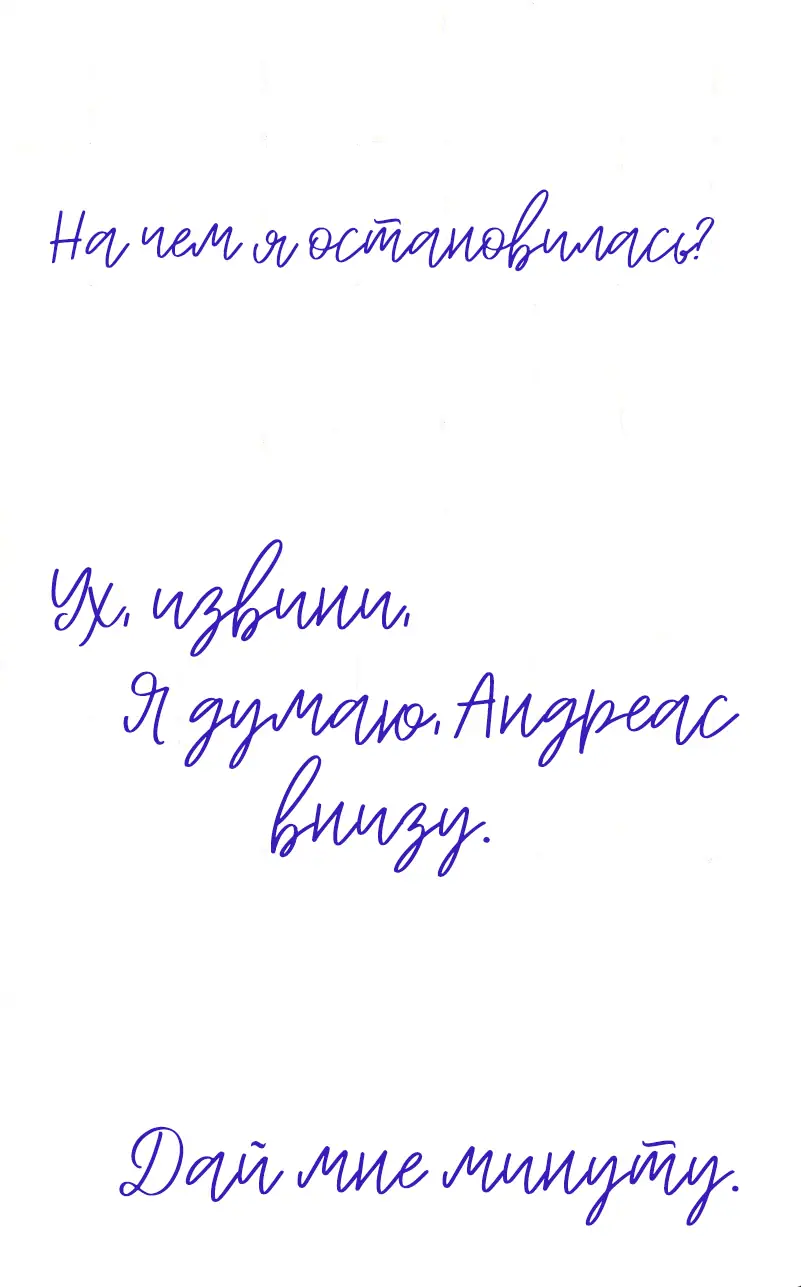 На чем я остановилась?
Ух, извини,
Я думаю, Андреас
внизу.
Дай мне минуту.